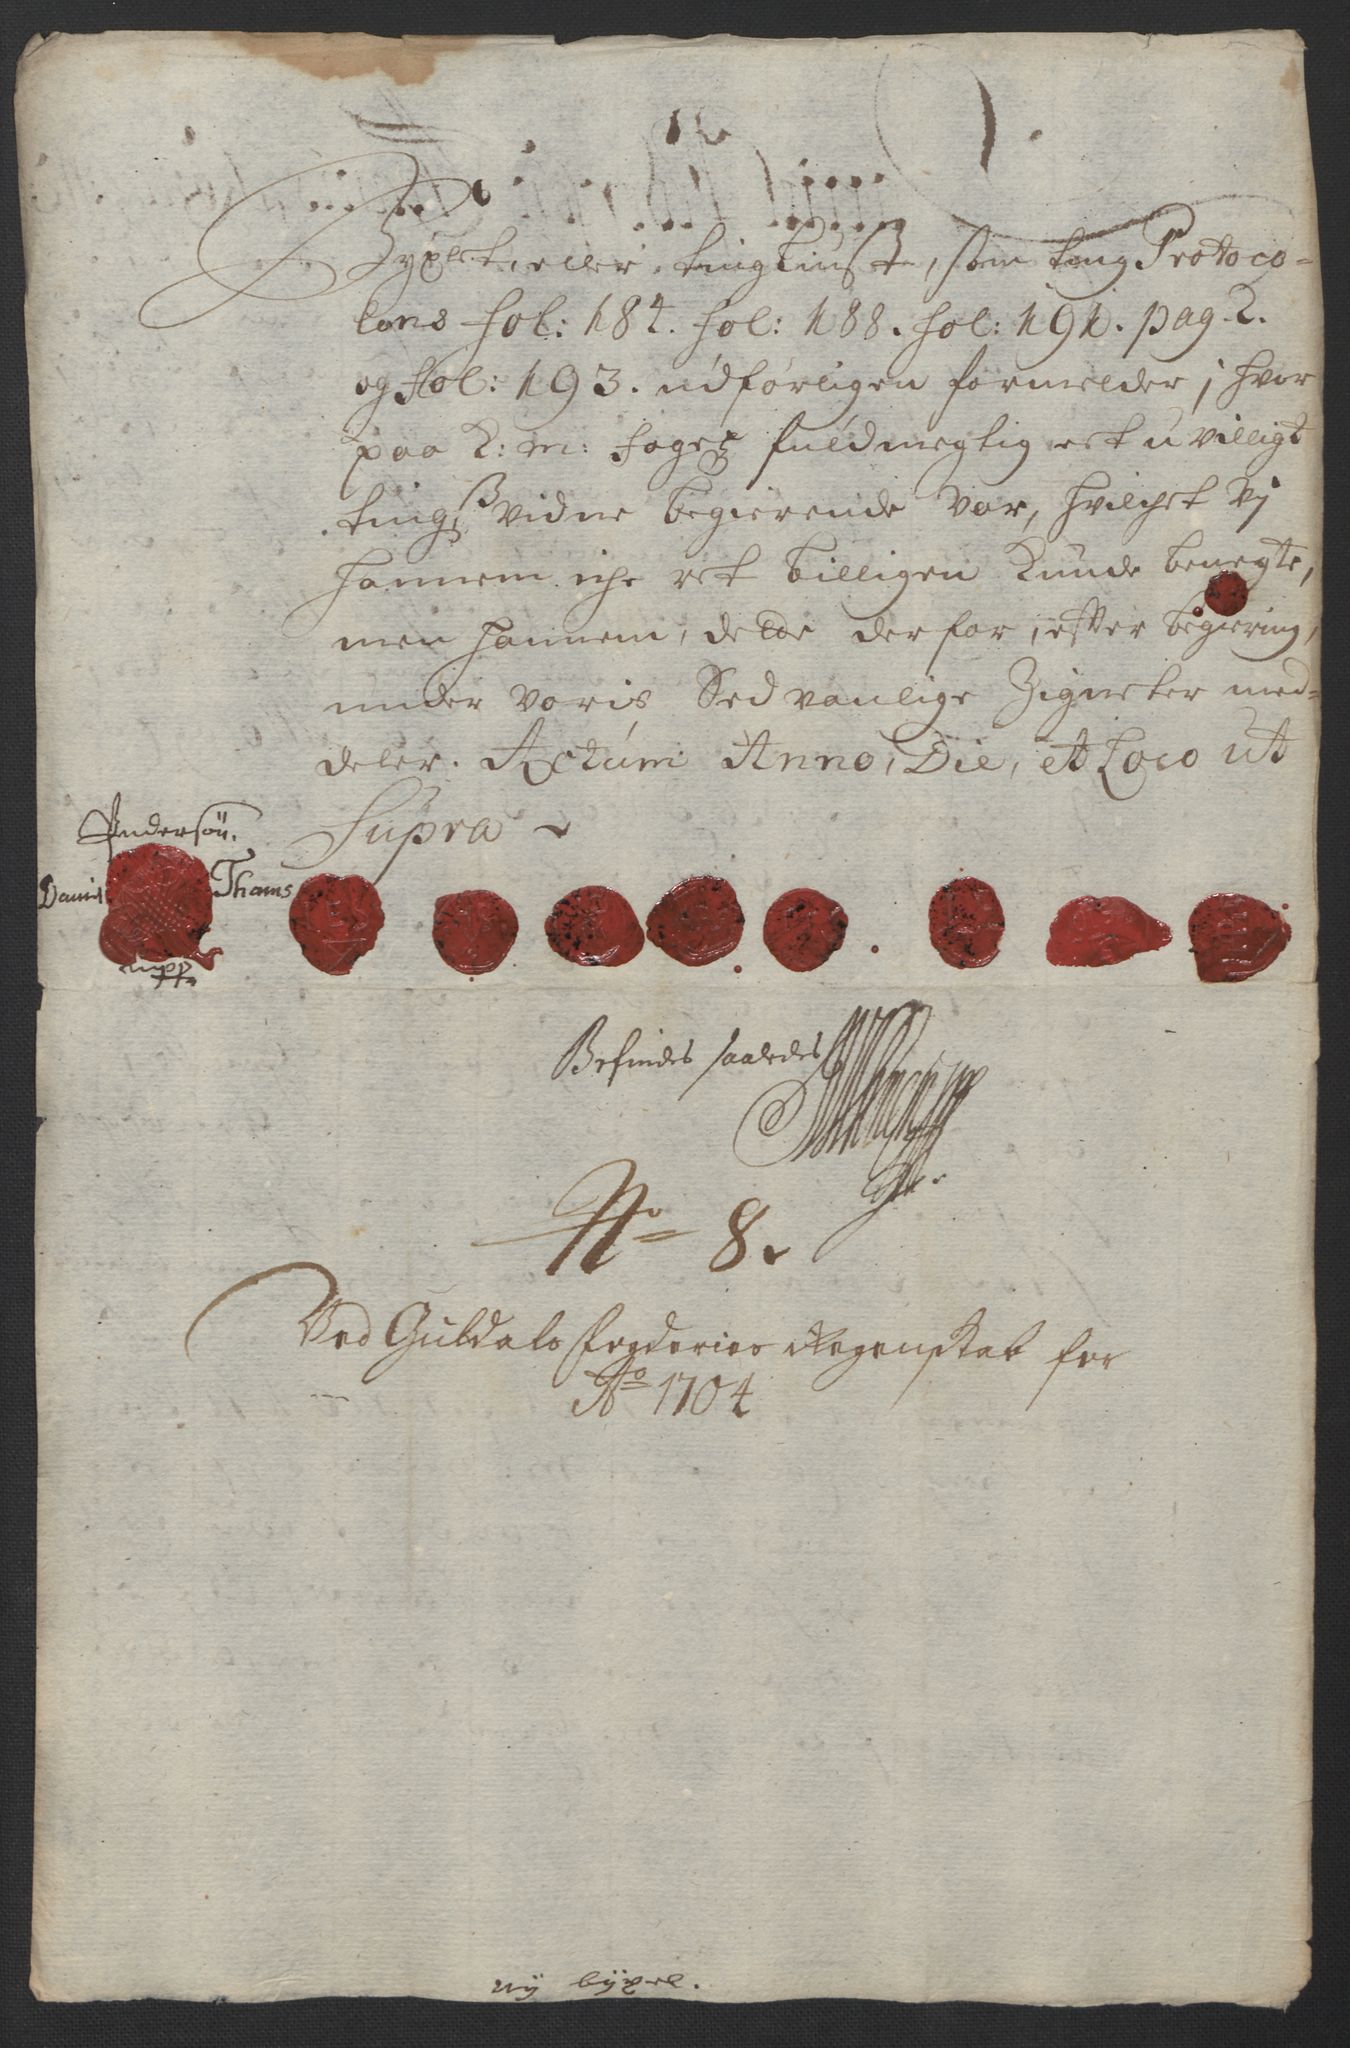 Byxlet, eller tinglyust, som ting Protoco-
lens fol: 184. fol: 188. fol: 191. pag. 2.
og fol: 193. udførligen formelder, hvor
paa K: M: foget fuldmegtig et uvilligt
tings vidne begierende var, hvilchet vj
hannem iche ret billigen kunde benegte,
men hannem, dette derfor, efter begiering,
under voris Sedvanlige Zigneter med-
deler. Actum Anno, Die, et Loco ut
Supra
Andersøn.
Daniel Thams
mpp
Befindes saaledes
No 8.
Ved Guldals fogderies Regenskab for
Ao 1704
ny byxel.